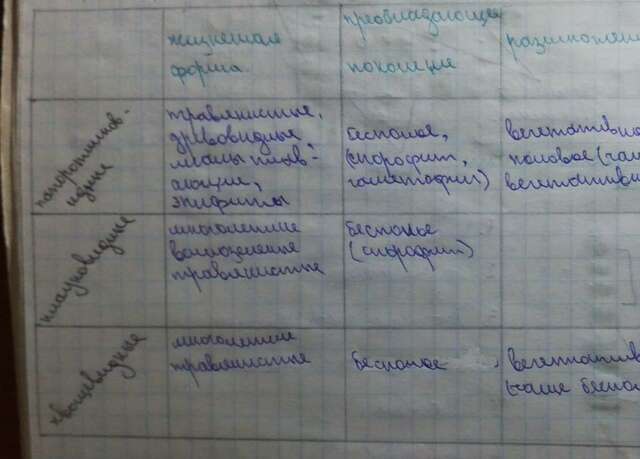 жизненная
форма
преобладающее
поколение
размножение
папоротников-
идные
травянистые,
древовидные
лианы плав-
ающие,
эпифиты
бесполое,
(спорофит,
гаметофит)
вегетативно
половое (гам
вегетативн
плауновидные
многолетние
вечнозеленые
травянистые
бесполые
(спорофит)
хвощевидные
многолетние
травянистые
бесполое
вегетатив
(чаще беспо